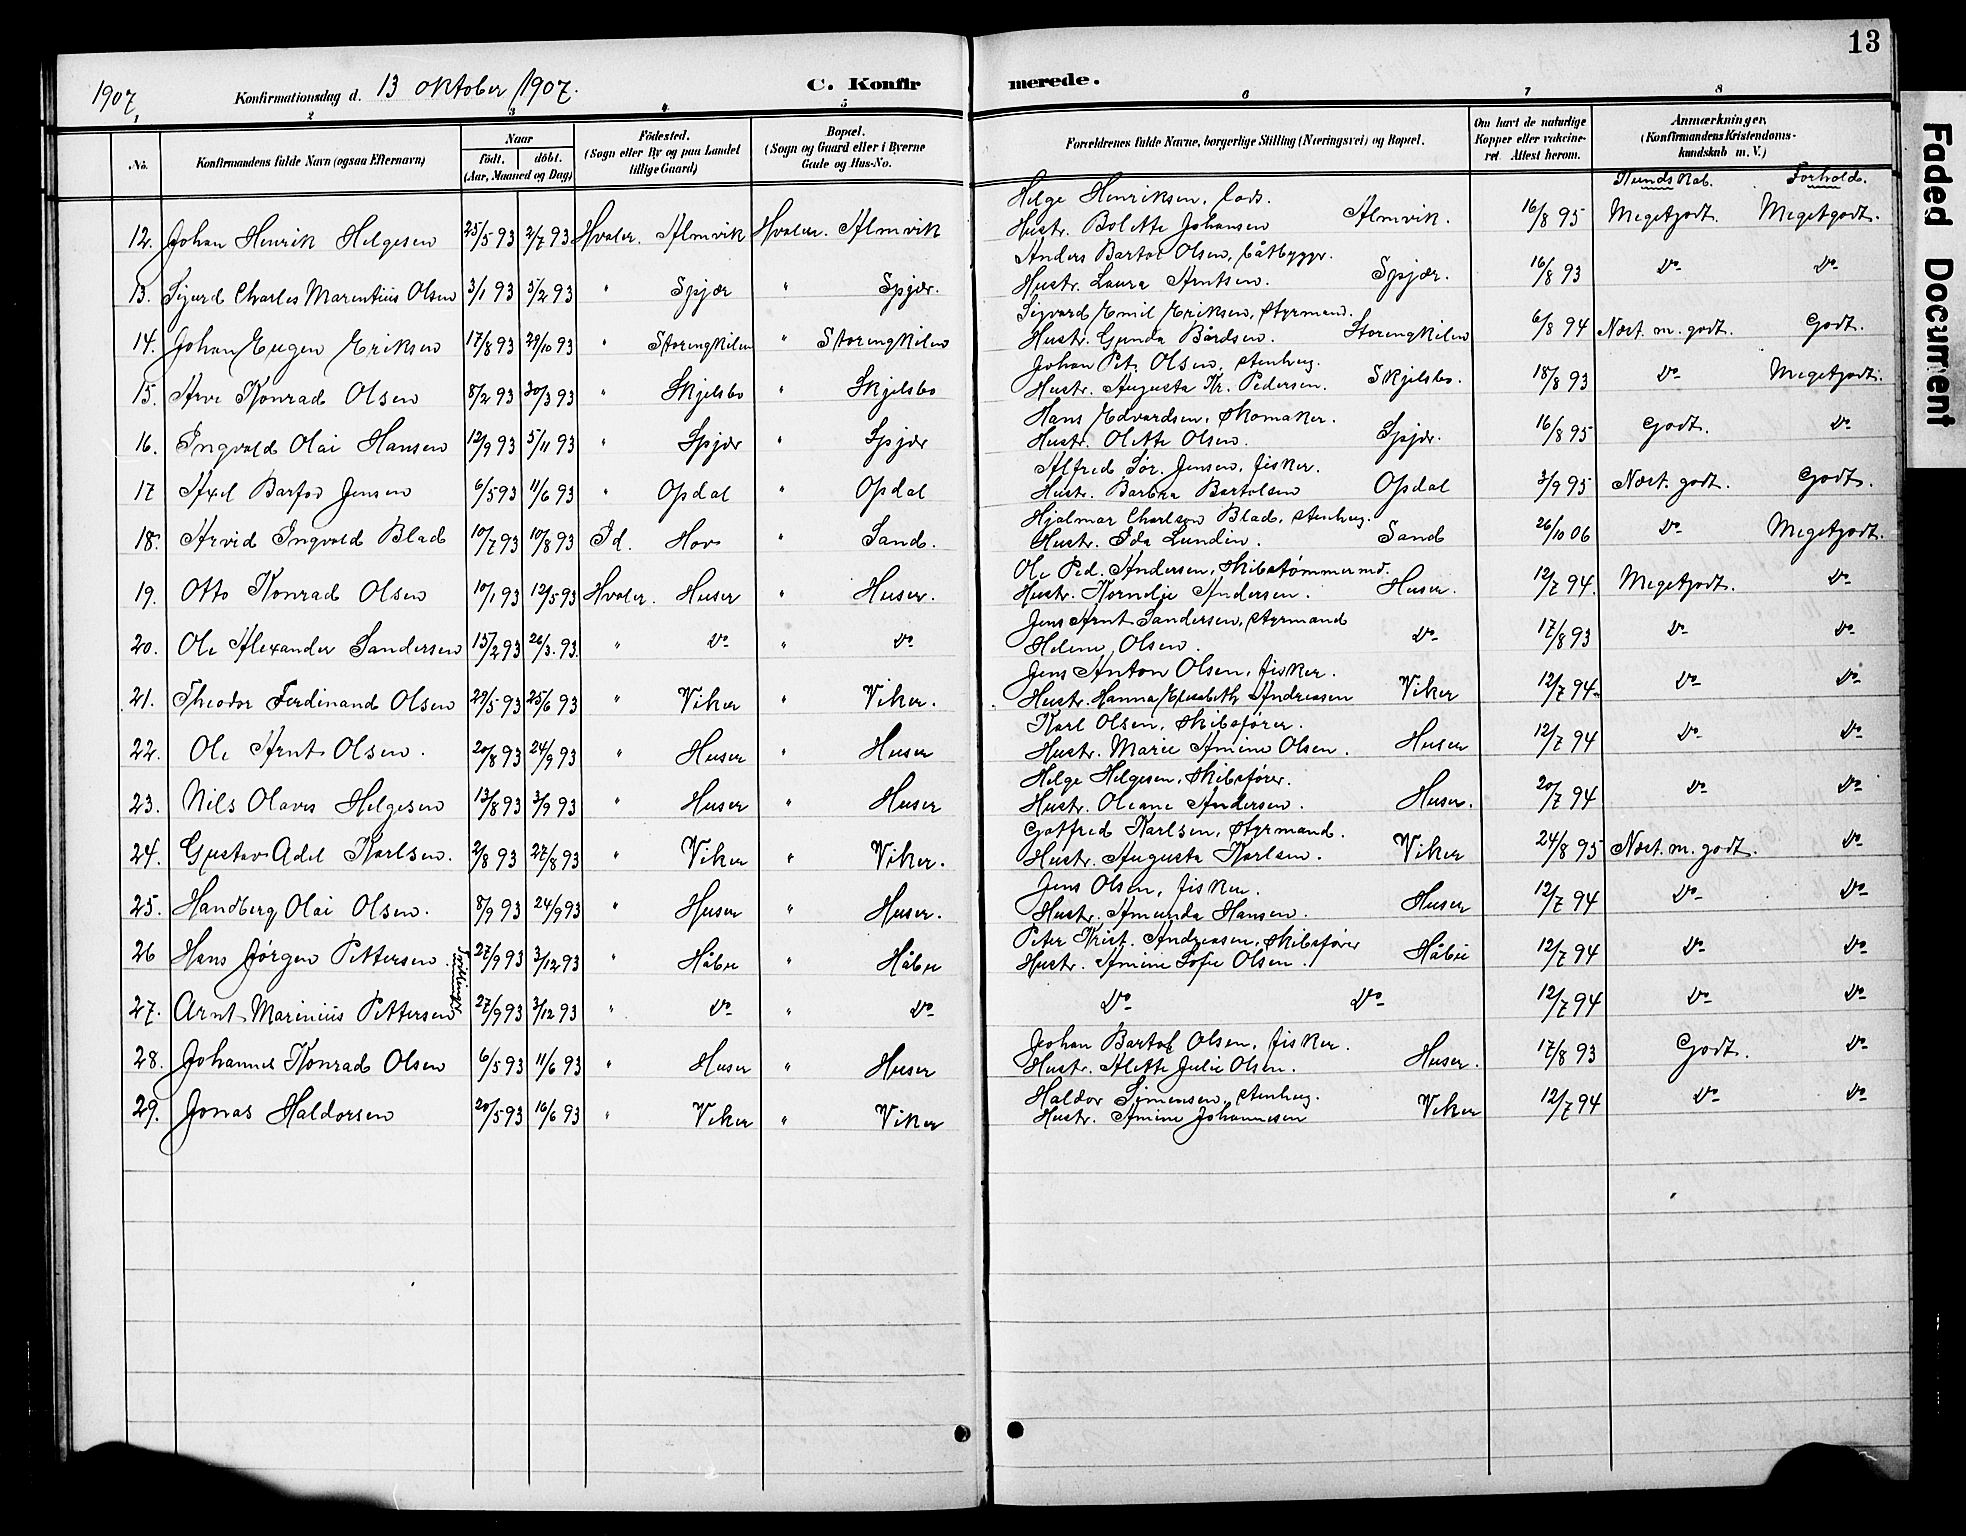 13
1907
Konfirmationsdag d. 13 oktober 1907.
C. Konfirmerede.
1 2 3 4 5 6 7 8
No.
Konfirmandens fulde Navn (ogsaa Efternavn)
Naar
født. døbt.
(Aar, Maaned og Dag)
Fødested.
(Sogn eller By og paa Landet
tillige Gaard)
Bopæl.
(Sogn og Gaard eller i Byerne
Gade og Hus-No.
Forældrenes fulde Navne, borgerlige Stilling (Næringsvei) og Bopæl.
Om havt de naturlige
Kopper eller vakcineret
Attest herom.
Anmærkninger.
(Konfirmandens Kristendomskundskab
m. V.)
Kundskab. Forhold.
Helge Henriksen, lods.
12. Johan Henrik Helgesen 25/5 93 2/7 93 Hvaler. Almvik Hvaler. Almvik Hustr. Bolette Johansen Almvik. 16/8 95 Megetgodt. Megetgodt.
Anders Bartol Olsen, båtbyggr.
13. Sigurd Charles Marentius Olsen 3/1 93 5/2 93 " Spjær " Spjær. Hustr. Laura Arntsen. Spjær. 16/8 93 Do Do
Sigvard Emil Eriksen, Styrmand.
14. Johan Eugen Eriksen 17/8 93 29/10 93 " Storengkilen " Storengkilen Hustr. Gunda Bårdsen. Storengkilen 6/8 94 Næst. m. godt. Godt.
Johan Pet. Olsen, stenhug.
15. Arve Konrad Olsen 8/2 93 30/3 93 " Skjelsbo " Skjelsbo Hustr. Augusta Kr. Pedersen. Skjelsbo. 18/8 93 Do Megetgodt.
Hans Edvardsen, Skomaker.
16. Ingvald Olai Hansen 12/9 93 5/11 93 " Spjær " Spjær Hustr. Olette Olsen. Spjær. 16/8 95 Godt. Do
Alfred Sør. Jensen, fisker.
17 Axel Bartod Jensen 6/5 93 11/6 93 " Opdal " Opdal Hustr. Barbra Bartolsen Opdal 3/9 95 Næst. godt. Godt.
Hjalmar Charlson Blad, stenhug.
18. Arvid Ingvald Blad 10/7 93 10/8 93 Id. Hov " Sand. Hustr. Ida Lundin. Sand 26/10 06 Do Megetgodt.
Ole Ped. Andersen, Skibstømmermd.
19. Otto Konrad Olsen 10/1 93 12/5 93 Hvaler. Huser " Huser. Hustr. Kornelje Andersen. Huser. 12/7 94. Megetgodt. Do
Jens Arnt Sandersen, Styrmand
20. Ole Alexander Sandersen 15/2 93 26/3. 93. " Do " Do Helene Olsen. Do 17/8 93 Do Do
Jens Anton Olsen, fisker.
21. Theodor Ferdinand Olsen 29/5 93 25/6 93 " Viker " Viker. Hustr. Hanna Elisabeth Andreasen Viker 12/7 94 Do Do
Karl Olsen, Skibsfører.
22. Ole Arnt Olsen. 20/8 93 24/9 93 " Huser " Huser Hustr. Marie Amine Olsen. Huser 12/7 94 Do Do
Helge Helgesen, Skibsfører.
23. Nils Olaves Helgesen 13/8 93 3/9 93 " Huser " Huser Hustr. Oleane Andersen. Huser. 20/7 94 Do Do
Gotfred Karlsen, Styrmand.
24. Gustav Adel Karlsen. 2/8 93 27/8 93 " Viker " Viker. Hustr. Augusta Karlsen. Viker 24/8 95 Næst. m. godt. Do
Jens Olsen, fisker.
25. Handberg Olai Olsen. 8/9 93 24/9 93 " Huser " Huser. Hustr. Amunda Hansen. Huser 12/7 94 Do Do
Peter Krist. Andreasen, Skibsfører
26 Hans Jørgen Pettersen. 27/9 93 3/12 93 " Håbu " Håbu Hustr. Amine Sofie Olsen. Håbu 12/7 94 Do Do
27. Arnt Marinius Pettersen 27/9 93 3/12 93 " Do " Do Do Do 12/7 94 Do Do
Johan Bartol Olsen, fisker.
28. Johannes Konrad Olsen 6/5 93 11/6 93 " Huser " Huser Hustr. Alette Julie Olsen. Huser. 17/8 93 Godt. Do
Haldor Simensen, stenhug.
29. Jonas Haldorsen 20/5 93 16/6 93 " Viker " Viker Hustr. Amine Johannesen Viker 12/7 94 Do Do
Faded Document